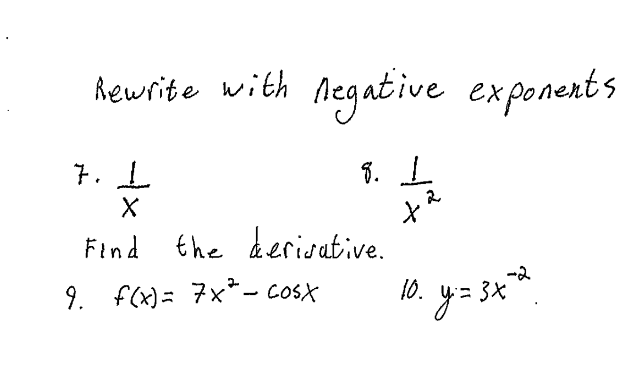 Rewrite with negative exponents
7. 1/x 8. 1/x²
Find the derivative.
9. f(x) = 7x² - cosx 10. y = 3x⁻².